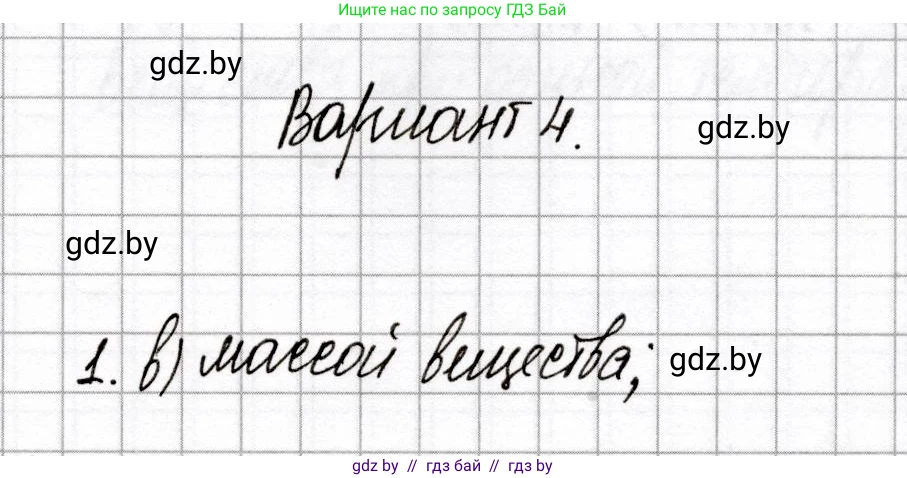 Ищите нас по запросу ГДЗ Бай
gdz.by
Вариант 4.
gdz.by
gdz.by
1. в) массой вещества;
gdz.by
gdz by // гдз бай // гдз by